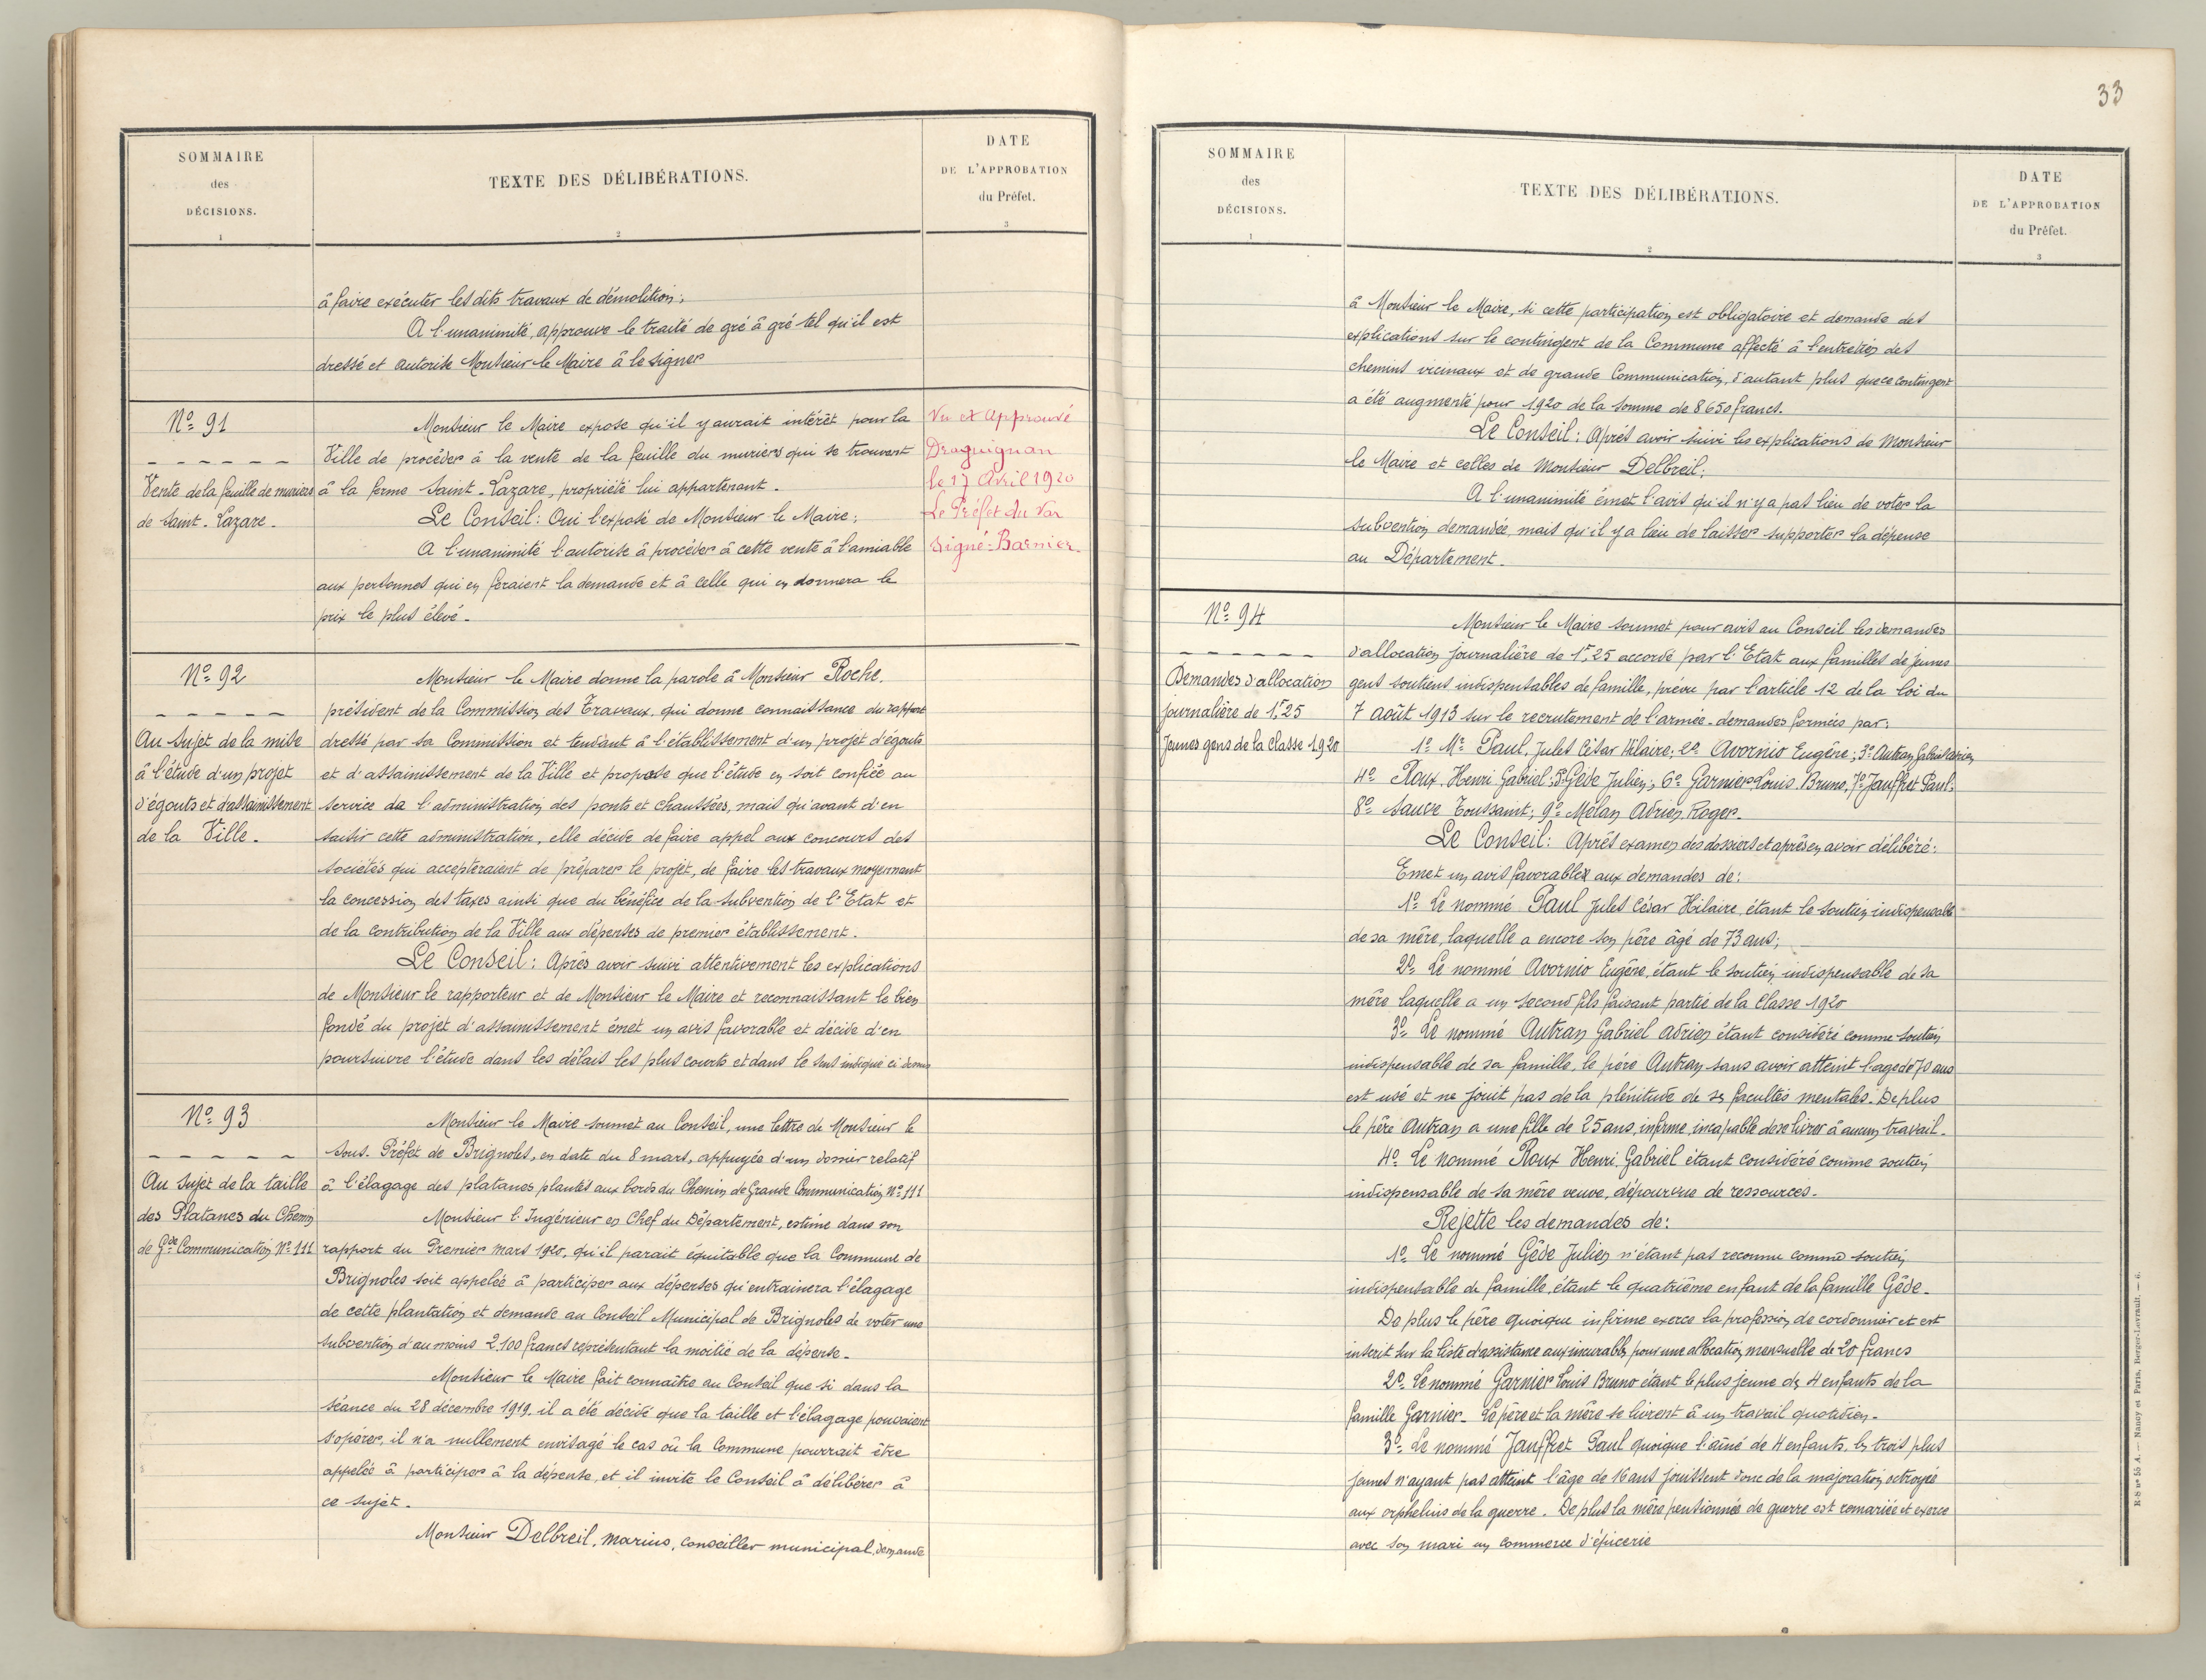 SOMMAIRE
des
DÉCISIONS.
1
TEXTE DES DÉLIBÉRATIONS.
2
DATE
DE L'APPROBATION
du Préfet.
3
à faire exécuter les dits travaux de démolition;
A l'unanimité, approuve le traité de gré à gré tel qu'il est
dressé et autorise Monsieur le Maire à le signer
Nº 91
Vente de la feuille de muriers
de Saint-Lazare.
Monsieur le Maire expose qu'il y aurait intérêt pour la
Ville de procéder à la vente de la feuille du muriers qui se trouvent
à la ferme Saint-Lazare, propriété lui appartenant.
Le Conseil: Oui l'exposé de Monsieur le Maire;
A l'unanimité l'autorise à procéder à cette vente à l'amiable
aux personnes qui en feraient la demande et à celle qui en donnera le
prix le plus élevé.
Vu et Approuvé
Draguignan
le 17 Avril 1920
Le Préfet du Var
Signé: Barnier.
Nº 92
Au sujet de la mise
à l'étude d'un projet
d'égouts et d'assainissement
de la Ville.
Monsieur le Maire donne la parole à Monsieur Roche,
président de la Commission des Travaux, qui donne connaissance du rapport
dressé par sa Commission et tendant à l'établissement d'un projet d'égouts
et d'assainissement de la Ville et propose que l'étude en soit confiée au
service de l'administration des ponts et chaussées, mais qu'avant d'en
saisir cette administration, elle décide de faire appel aux concours des
sociétés qui accepteraient de préparer le projet, de faire les travaux moyennant
la concession des taxes ainsi que du bénéfice de la subvention de l'Etat et
de la contribution de la Ville aux dépenses de premier établissement.
Le Conseil: Après avoir suivi attentivement les explications
de Monsieur le rapporteur et de Monsieur le Maire et reconnaissant le bien
fondé du projet d'assainissement émet un avis favorable et décide d'en
poursuivre l'étude dans les délais les plus courts et dans le sens indiqué ci dessus
Nº 93
Au sujet de la taille
des Platanes du Chemin
de Gde Communication Nº 111
Monsieur le Maire soumet au Conseil, une lettre de Monsieur le
Sous-Préfet de Brignoles, en date du 8 mars, appuyée d'un dossier relatif
à l'élagage des platanes plantés aux bords du Chemin de Grande Communication Nº 111
Monsieur l'Ingénieur en Chef du Département, estime dans son
rapport du Premier mars 1920, qu'il parait équitable que la Commune de
Brignoles soit appelée à participer aux dépenses qu'entrainera l'élagage
de cette plantation et demande au Conseil Municipal de Brignoles de voter une
subvention d'au moins 2.100 francs représentant la moitié de la dépense.
Monsieur le Maire fait connaître au Conseil que si dans la
séance du 28 décembre 1919, il a été décidé que la taille et l'élagage pouvaient
s'opérer, il n'a nullement envisagé le cas où la Commune pourrait être
appelée à participer à la dépense, et il invite le Conseil à délibérer à
ce sujet.
Monsieur Delbreil, marius, conseiller municipal, demande
33
SOMMAIRE
des
DÉCISIONS.
1
TEXTE DES DÉLIBÉRATIONS.
2
DATE
DE L'APPROBATION
du Préfet.
3
à Monsieur le Maire, si cette participation est obligatoire et demande des
explications sur le contingent de la Commune affecté à l'entretien des
chemins vicinaux et de grande Communication, d'autant plus que ce contingent
a été augmenté pour 1920 de la somme de 8650 francs.
Le Conseil: Après avoir suivi les explications de Monsieur
le Maire et celles de Monsieur Delbreil;
A l'unanimité émet l'avis qu'il n'y a pas lieu de voter la
subvention demandée, mais qu'il y a lieu de laisser supporter la dépense
au Département.
Nº 94
Demandes d'allocation
journalière de 1f,25
Jeunes gens de la classe 1920
Monsieur le Maire soumet pour avis au Conseil les demandes
d'allocation journalière de 1f,25 accordé par l'Etat aux familles de jeunes
gens soutiens indispensables de famille, prévu par l'article 12 de la loi du
7 août 1913 sur le recrutement de l'armée. demandes formées par:
1º Mr Paul, Jules César Hilaire; 2º Avornio Eugène; 3º Autran Gabriel Adrien
4º Roux, Henri Gabriel; 5º Gède Julien; 6º Garnier Louis Bruno, 7º Jauffret Paul;
8º Sauve Toussaint; 9º Mélan Adrien Roger.
Le Conseil: Après examen des dossiers et après en avoir délibéré:
Emet un avis favorable aux demandes de:
1º Le nommé Paul Jules César Hilaire, étant le soutien indispensable
de sa mère, laquelle a encore son père âgé de 73 ans;
2º Le nommé Avornio Eugène, étant le soutien indispensable de sa
mère laquelle a un second fils faisant partie de la classe 1920
3º Le nommé Autran Gabriel Adrien étant considéré comme soutien
indispensable de sa famille, le père Autran sans avoir atteint l'age de 70 ans
est usé et ne jouit pas de la plénitude de ses facultés mentales. De plus
le père Autran a une fille de 25 ans, infirme, incapable de se livrer à aucun travail.
4º Le nommé Roux Henri Gabriel étant considéré comme soutien
indispensable de sa mère veuve, dépourvue de ressources.
Rejette les demandes de:
1º Le nommé Gède Julien n'étant pas reconnu comme soutien
indispensable de famille, étant le quatrième enfant de la famille Gède.
De plus le père quoique infirme exerce la profession de cordonnier et est
inscrit sur la liste d'assistance aux incurables pour une allocation mensuelle de 20 francs
2º Le nommé Garnier Louis Bruno étant le plus jeune des 4 enfants de la
famille Garnier. Le père et la mère se livrent à un travail quotidien.
3º Le nommé Jauffret Paul quoique l'aîné de 4 enfants, les trois plus
jeunes n'ayant pas atteint l'âge de 16 ans jouissent donc de la majoration octroyée
aux orphelins de la guerre. De plus la mère pensionnée de guerre est remariée et exerce
avec son mari un commerce d'épicerie
R-S nº 55 A. — Nancy et Paris, Berger-Levrault. — 6.